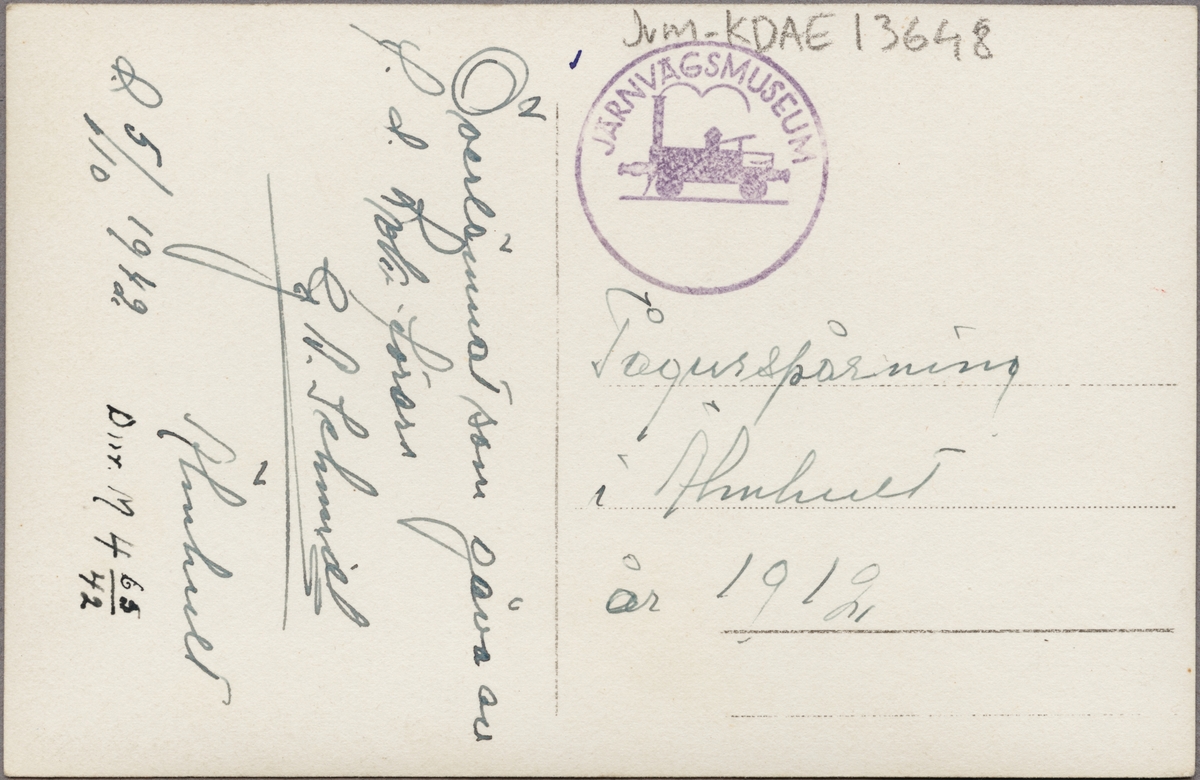 Jvm-KDAE 13648
JÄRNVÄGSMUSEUM
Tågurspårning
i Älmhult
år 1912
Överlämnat som gåva av
f. d. Lok.-föraren
Schmidt
Älmhult
D. 5/10 1942
Dnr. M 4 65/42